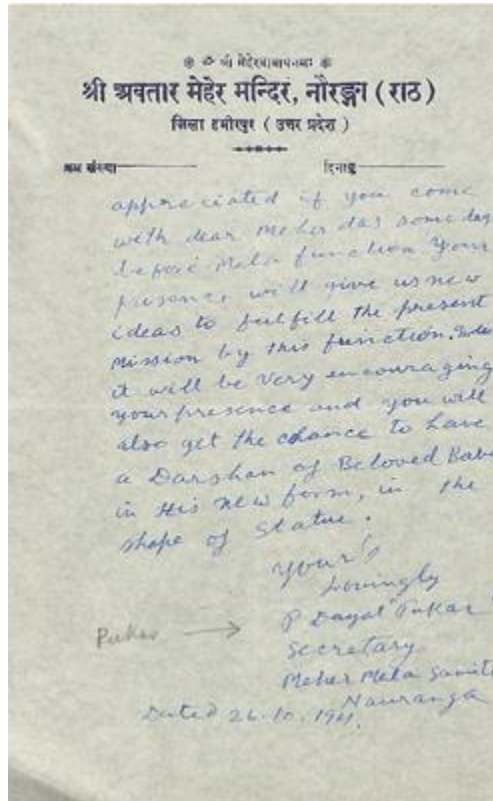 ॐ श्री मेहेरबाबायनमः
श्री अवतार मेहेर मन्दिर, नौरङ्गा ( राठ )
जिला हमीरपुर ( उत्तर प्रदेश )
क्रम संख्या
दिनाङ्क
appreciated if you come
with dear Meher das some day
before Mela function Your
presence will give us new
ideas to fulfill the present
Mission by this function.
it will be very encouraging
your presence and you will
also get the chance to have
a Darshan of Beloved Baba
in His new form, in the
shape of Statue.
Your's
Lovingly
P Dayal "Pukar"
Pukar →
Secretary
Meher Mela Samiti
Nauranga
Dated 26.10.